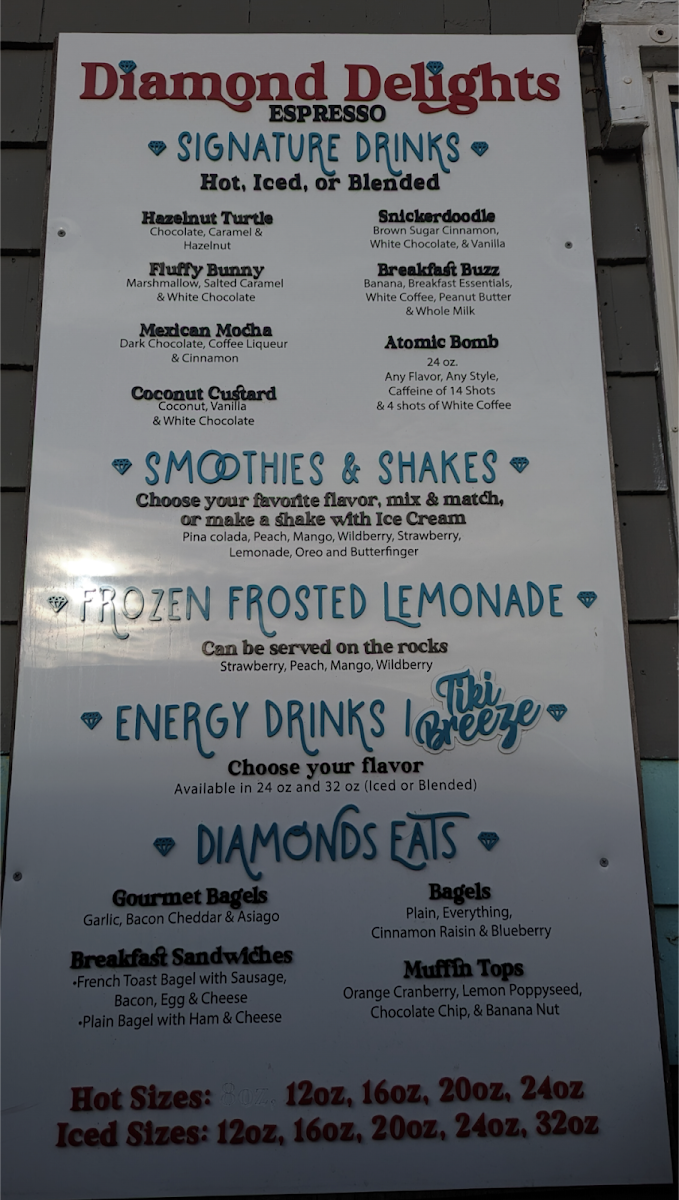 Diamond Delights
ESPRESSO
SIGNATURE DRINKS
Hot, Iced, or Blended
Hazelnut Turtle
Chocolate, Caramel &
Hazelnut
Fluffy Bunny
Marshmallow, Salted Caramel
& White Chocolate
Mexican Mocha
Dark Chocolate, Coffee Liqueur
& Cinnamon
Coconut Custard
Coconut, Vanilla
& White Chocolate
Snickerdoodle
Brown Sugar Cinnamon,
White Chocolate, & Vanilla
Breakfast Buzz
Banana, Breakfast Essentials,
White Coffee, Peanut Butter
& Whole Milk
Atomic Bomb
24 oz.
Any Flavor, Any Style,
Caffeine of 14 Shots
& 4 shots of White Coffee
SMOOTHIES & SHAKES
Choose your favorite flavor, mix & match,
or make a shake with Ice Cream
Pina colada, Peach, Mango, Wildberry, Strawberry,
Lemonade, Oreo and Butterfinger
FROZEN FROSTED LEMONADE
Can be served on the rocks
Strawberry, Peach, Mango, Wildberry
ENERGY DRINKS | Tiki Breeze
Choose your flavor
Available in 24 oz and 32 oz (Iced or Blended)
DIAMONDS EATS
Gourmet Bagels
Garlic, Bacon Cheddar & Asiago
Breakfast Sandwiches
•French Toast Bagel with Sausage,
Bacon, Egg & Cheese
•Plain Bagel with Ham & Cheese
Bagels
Plain, Everything,
Cinnamon Raisin & Blueberry
Muffin Tops
Orange Cranberry, Lemon Poppyseed,
Chocolate Chip, & Banana Nut
Hot Sizes: 8oz, 12oz, 16oz, 20oz, 24oz
Iced Sizes: 12oz, 16oz, 20oz, 24oz, 32oz